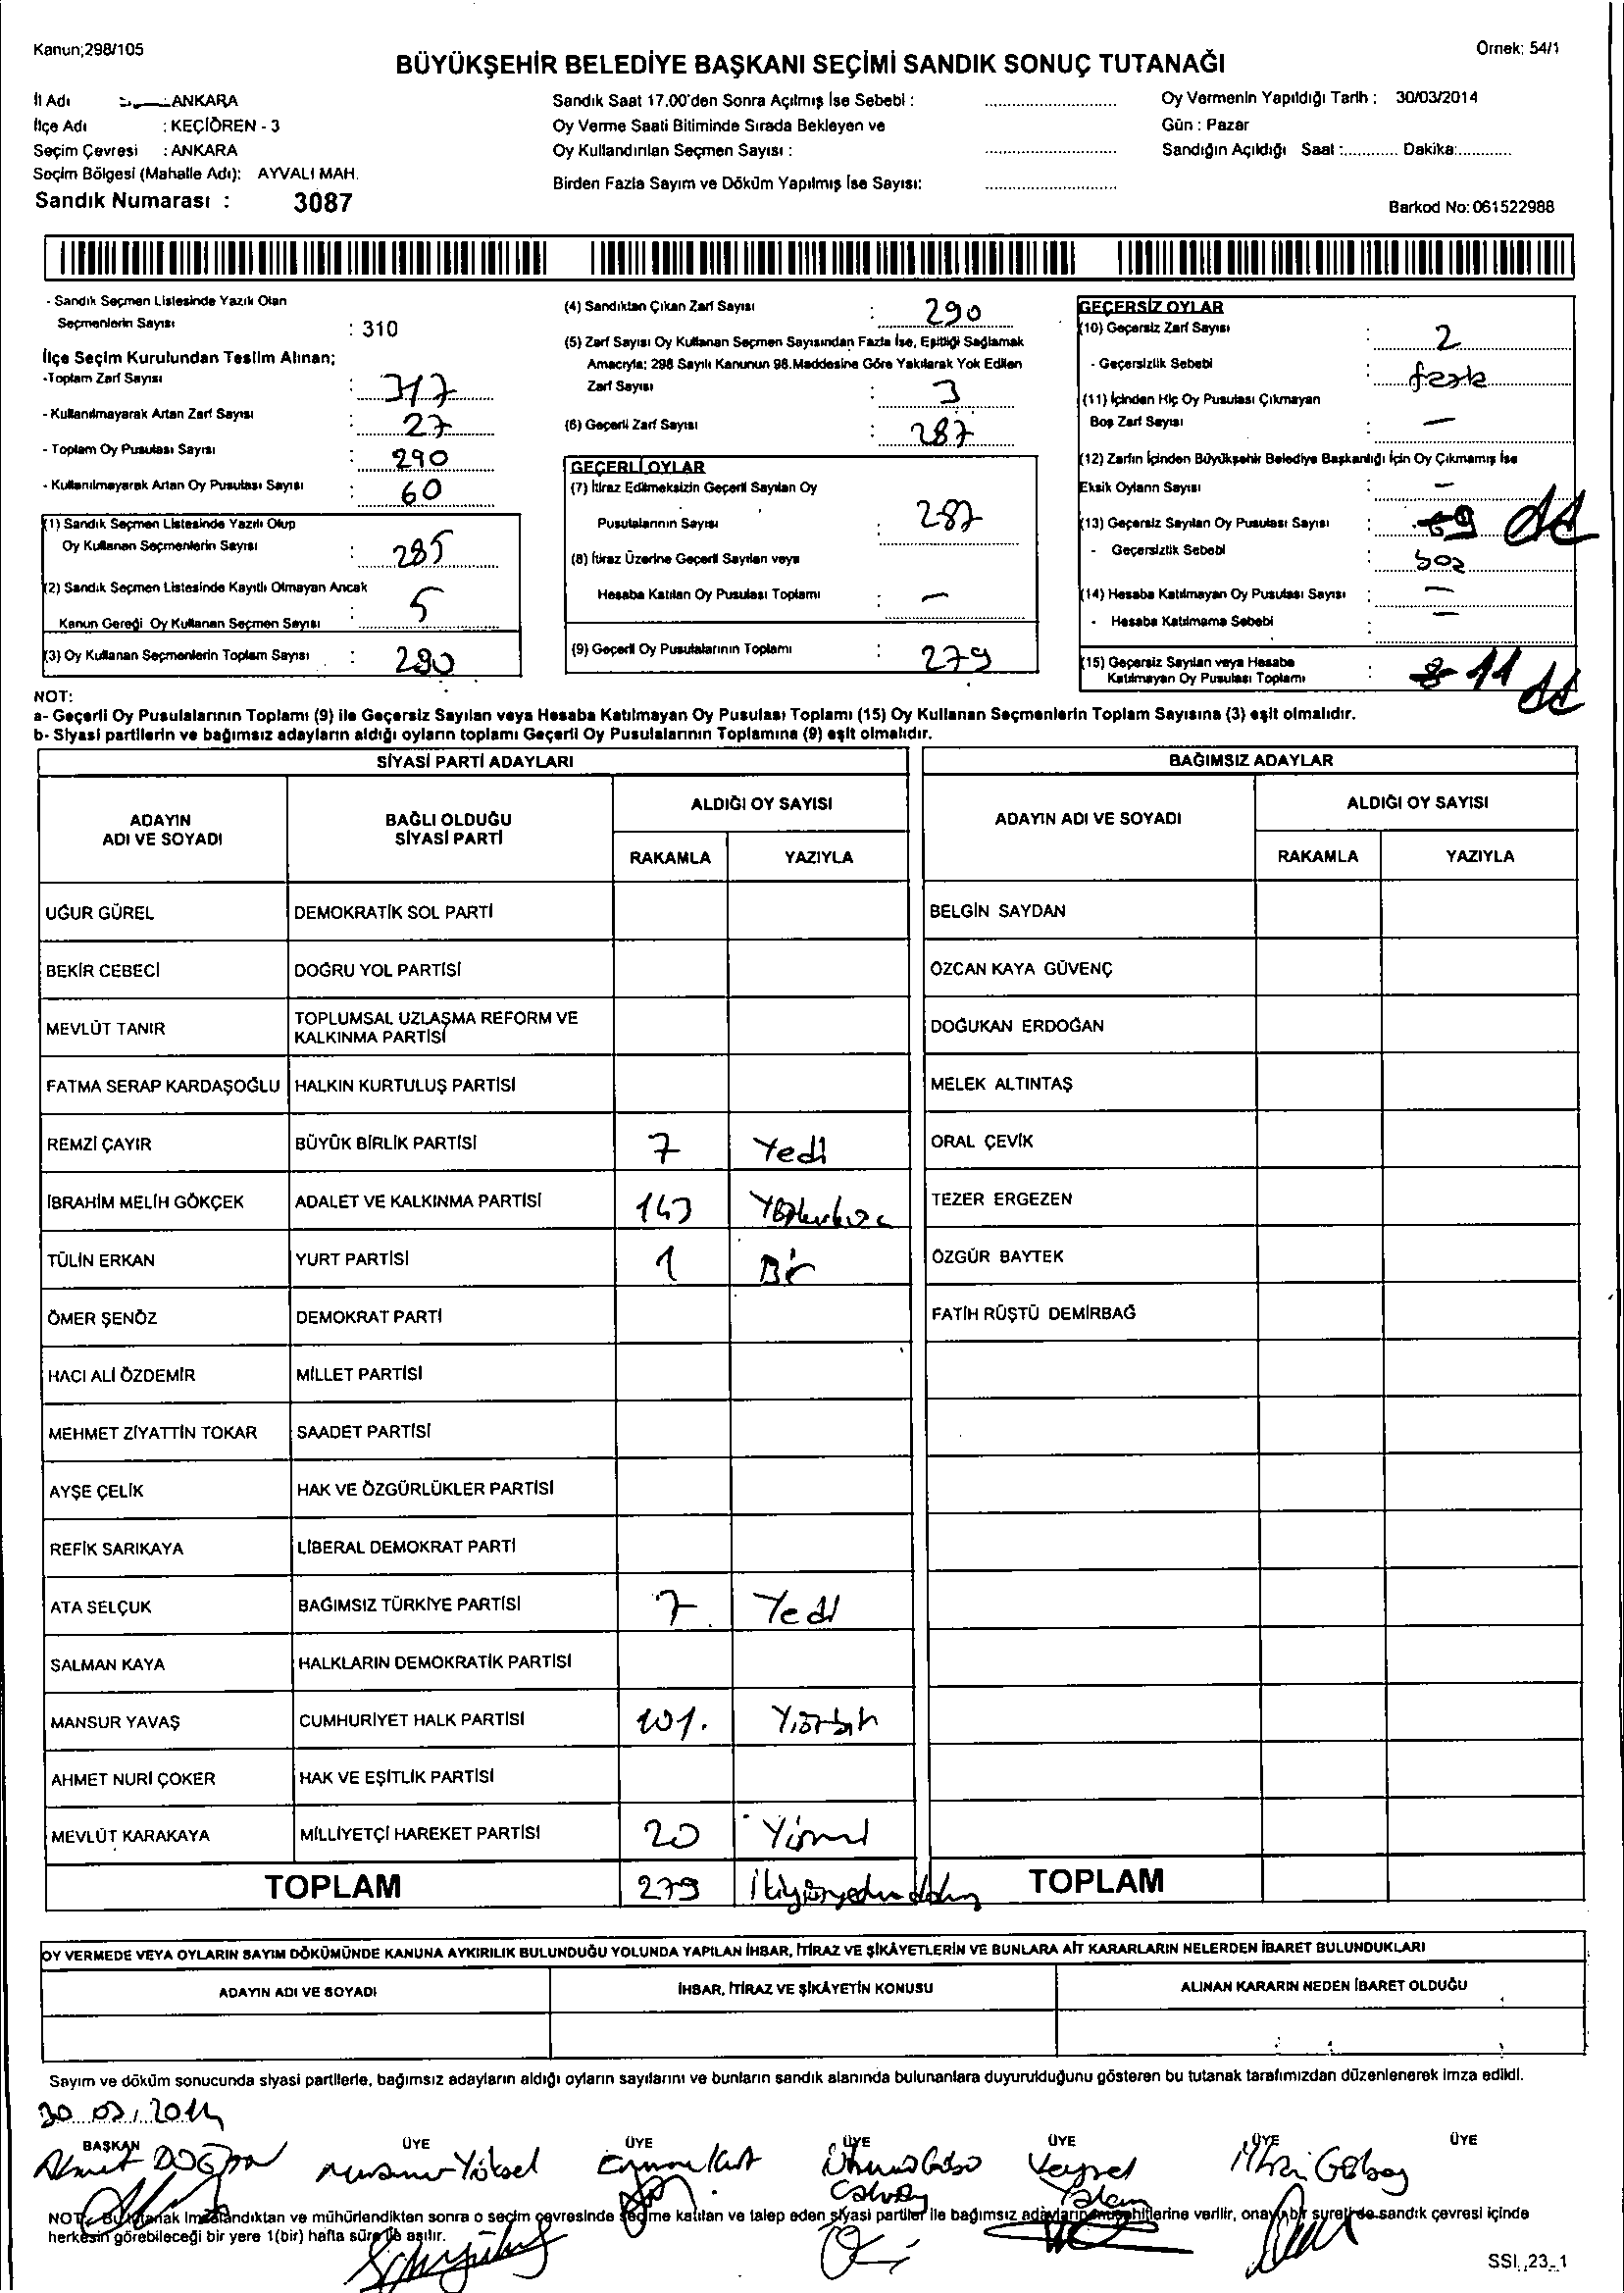 Kanun;298/105
Örnek: 54/1
BÜYÜKŞEHİR BELEDİYE BAŞKANI SEÇİMİ SANDIK SONUÇ TUTANAĞI
İl Adı : ANKARA
İlçe Adı : KEÇİÖREN - 3
Seçim Çevresi : ANKARA
Seçim Bölgesi (Mahalle Adı): AYVALI MAH.
Sandık Numarası : 3087
Sandık Saat 17.00'den Sonra Açılmış İse Sebebi :
Oy Verme Saati Bitiminde Sırada Bekleyen ve
Oy Kullandırılan Seçmen Sayısı :
Birden Fazla Sayım ve Döküm Yapılmış İse Sayısı:
Oy Vermenin Yapıldığı Tarih : 30/03/2014
Gün : Pazar
Sandığın Açıldığı Saat :............ Dakika:............
Barkod No: 061522988
- Sandık Seçmen Listesinde Yazılı Olan
Seçmenlerin Sayısı : 310
İlçe Seçim Kurulundan Teslim Alınan;
-Toplam Zarf Sayısı : 317
- Kullanılmayarak Artan Zarf Sayısı : 27
- Toplam Oy Pusulası Sayısı : 290
- Kullanılmayarak Artan Oy Pusulası Sayısı : 60
(1) Sandık Seçmen Listesinde Yazılı Olup
Oy Kullanan Seçmenlerin Sayısı : 285
(2) Sandık Seçmen Listesinde Kayıtlı Olmayan Ancak
Kanun Gereği Oy Kullanan Seçmen Sayısı : 5
(3) Oy Kullanan Seçmenlerin Toplam Sayısı : 290
(4) Sandıktan Çıkan Zarf Sayısı : 290
(5) Zarf Sayısı Oy Kullanan Seçmen Sayısından Fazla İse, Eşitliği Sağlamak
Amacıyla; 298 Sayılı Kanunun 98.Maddesine Göre Yakılarak Yok Edilen
Zarf Sayısı : 3
(6) Geçerli Zarf Sayısı : 287
GEÇERLİ OYLAR
(7) İtiraz Edilmeksizin Geçerli Sayılan Oy
Pusulalarının Sayısı : 287
(8) İtiraz Üzerine Geçerli Sayılan veya
Hesaba Katılan Oy Pusulası Toplamı : –
(9) Geçerli Oy Pusulalarının Toplamı : 279
GEÇERSİZ OYLAR
(10) Geçersiz Zarf Sayısı : 2
- Geçersizlik Sebebi : fazla
(11) İçinden Hiç Oy Pusulası Çıkmayan
Boş Zarf Sayısı : –
(12) Zarfın İçinden Büyükşehir Belediye Başkanlığı İçin Oy Çıkmamış İse
Eksik Oyların Sayısı : –
(13) Geçersiz Sayılan Oy Pusulası Sayısı :
- Geçersizlik Sebebi :
(14) Hesaba Katılmayan Oy Pusulası Sayısı : –
- Hesaba Katılmama Sebebi : –
(15) Geçersiz Sayılan veya Hesaba
Katılmayan Oy Pusulası Toplamı : 8 11
NOT:
a- Geçerli Oy Pusulalarının Toplamı (9) ile Geçersiz Sayılan veya Hesaba Katılmayan Oy Pusulası Toplamı (15) Oy Kullanan Seçmenlerin Toplam Sayısına (3) eşit olmalıdır.
b- Siyasi partilerin ve bağımsız adayların aldığı oyların toplamı Geçerli Oy Pusulalarının Toplamına (9) eşit olmalıdır.
SİYASİ PARTİ ADAYLARI
ADAYIN ADI VE SOYADI
BAĞLI OLDUĞU SİYASİ PARTİ
ALDIĞI OY SAYISI
RAKAMLA YAZIYLA
UĞUR GÜREL DEMOKRATİK SOL PARTİ
BEKİR CEBECİ DOĞRU YOL PARTİSİ
MEVLÜT TANIR TOPLUMSAL UZLAŞMA REFORM VE KALKINMA PARTİSİ
FATMA SERAP KARDAŞOĞLU HALKIN KURTULUŞ PARTİSİ
REMZİ ÇAYIR BÜYÜK BİRLİK PARTİSİ 7 Yedi
İBRAHİM MELİH GÖKÇEK ADALET VE KALKINMA PARTİSİ 143
TÜLİN ERKAN YURT PARTİSİ 1 Bir
ÖMER ŞENÖZ DEMOKRAT PARTİ
HACI ALİ ÖZDEMİR MİLLET PARTİSİ
MEHMET ZİYATTİN TOKAR SAADET PARTİSİ
AYŞE ÇELİK HAK VE ÖZGÜRLÜKLER PARTİSİ
REFİK SARIKAYA LİBERAL DEMOKRAT PARTİ
ATA SELÇUK BAĞIMSIZ TÜRKİYE PARTİSİ 7 Yedi
SALMAN KAYA HALKLARIN DEMOKRATİK PARTİSİ
MANSUR YAVAŞ CUMHURİYET HALK PARTİSİ 101. Yüzbir
AHMET NURİ ÇOKER HAK VE EŞİTLİK PARTİSİ
MEVLÜT KARAKAYA MİLLİYETÇİ HAREKET PARTİSİ 20 Yirmi
TOPLAM 279 İkiyüzyetmişdokuz
BAĞIMSIZ ADAYLAR
ADAYIN ADI VE SOYADI
ALDIĞI OY SAYISI
RAKAMLA YAZIYLA
BELGİN SAYDAN
ÖZCAN KAYA GÜVENÇ
DOĞUKAN ERDOĞAN
MELEK ALTINTAŞ
ORAL ÇEVİK
TEZER ERGEZEN
ÖZGÜR BAYTEK
FATİH RÜŞTÜ DEMİRBAĞ
TOPLAM
OY VERMEDE VEYA OYLARIN SAYIM DÖKÜMÜNDE KANUNA AYKIRILIK BULUNDUĞU YOLUNDA YAPILAN İHBAR, İTİRAZ VE ŞİKÂYETLERİN VE BUNLARA AİT KARARLARIN NELERDEN İBARET BULUNDUKLARI
ADAYIN ADI VE SOYADI İHBAR, İTİRAZ VE ŞİKÂYETİN KONUSU ALINAN KARARIN NEDEN İBARET OLDUĞU
Sayım ve döküm sonucunda siyasi partilerle, bağımsız adayların aldığı oyların sayılarını ve bunların sandık alanında bulunanlara duyurulduğunu gösteren bu tutanak tarafımızdan düzenlenerek imza edildi.
30 03 / 2014
BAŞKAN ÜYE ÜYE ÜYE ÜYE ÜYE ÜYE
Ahmet DOĞAN Yüksel Kurt Veysel
NOT: Bu tutanak İmzalandıktan ve mühürlendikten sonra o seçim çevresinde seçime katılan ve talep eden siyasi partiler ile bağımsız adayların müşahitlerine verilir, onaylı bir suretide sandık çevresi içinde
herkesin görebileceği bir yere 1(bir) hafta süre ile asılır.
SSI_23_1